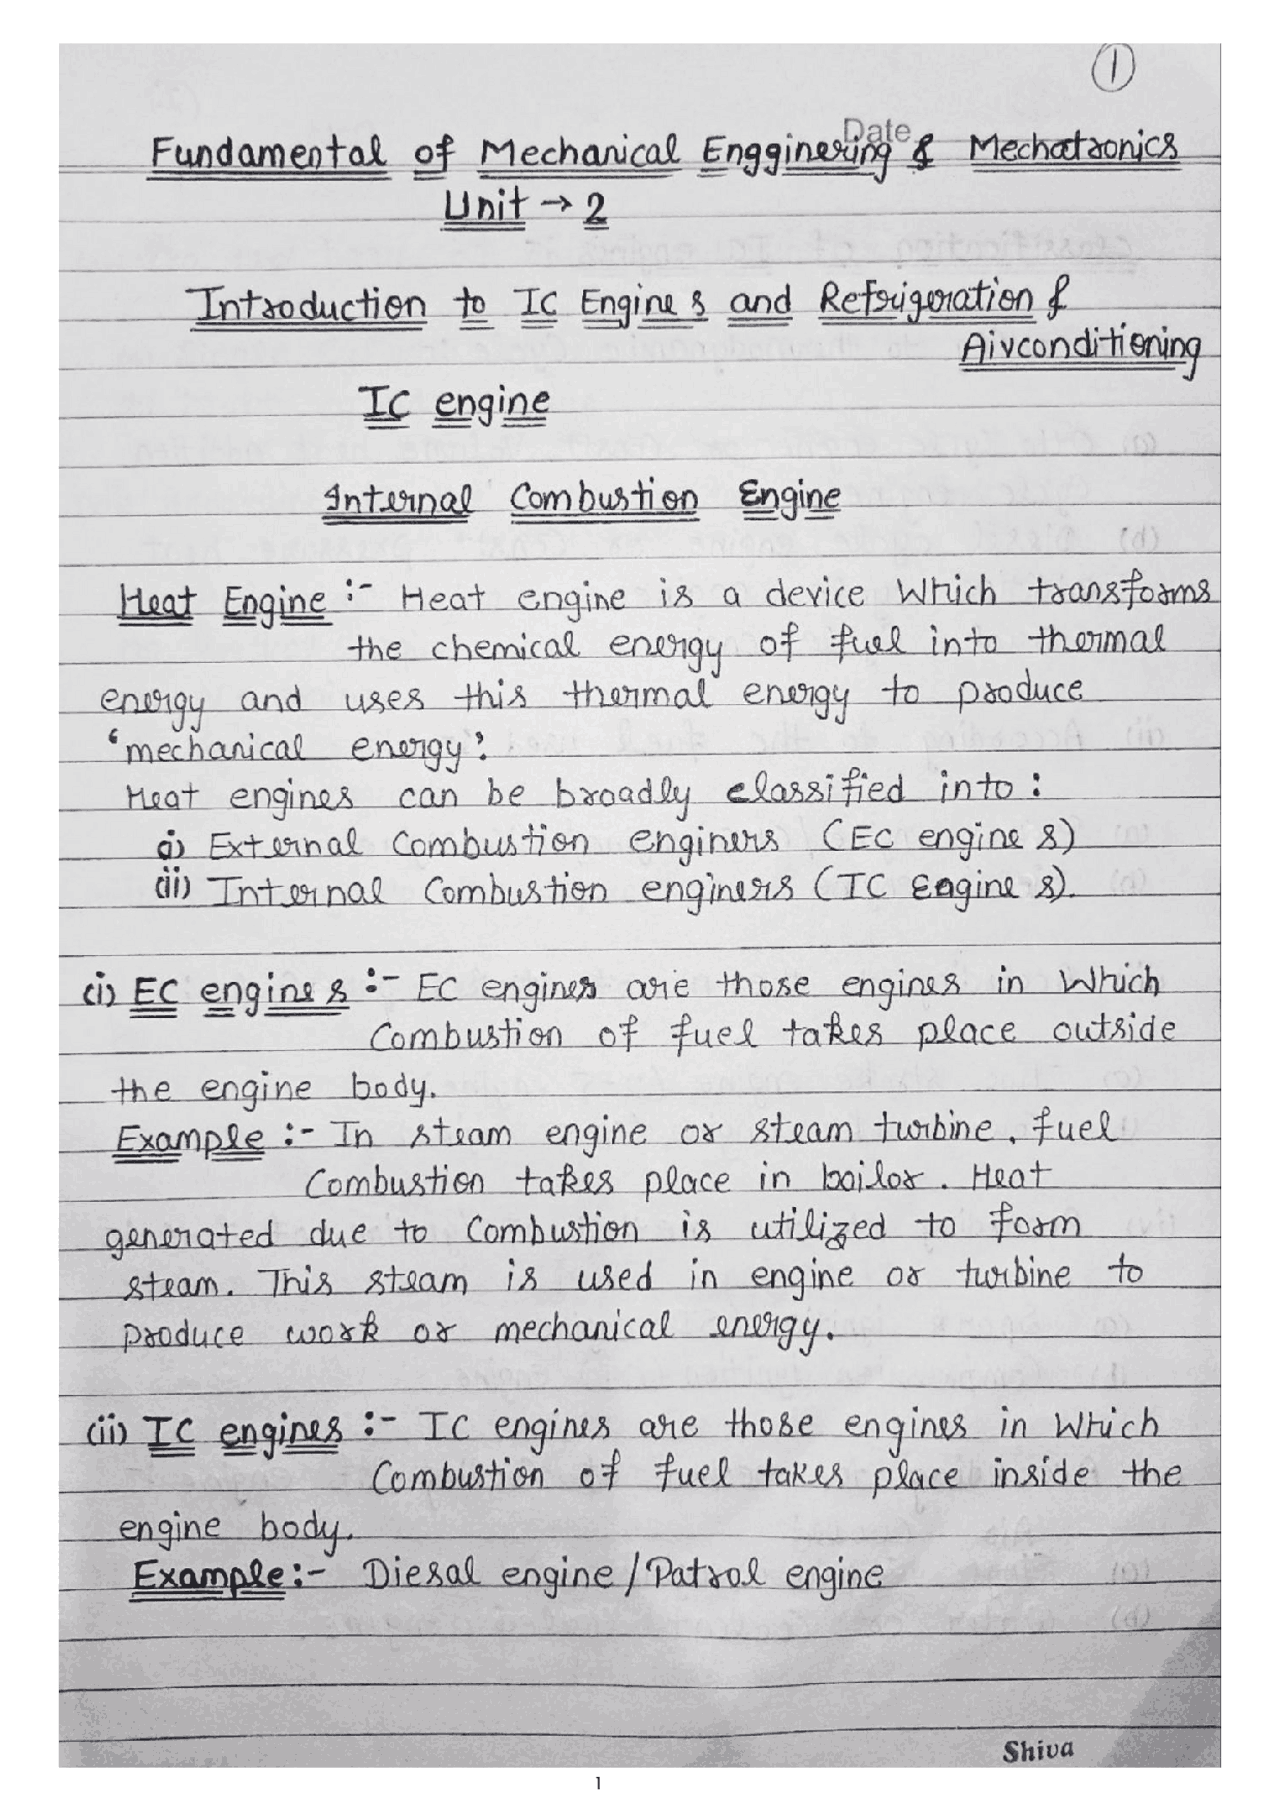 1
Date
Fundamental of Mechanical Engginering & Mechatronics
Unit → 2
Introduction to IC Engines and Refrigeration &
Airconditioning
IC engine
Internal Combustion Engine
Heat Engine :- Heat engine is a device Which transforms
the chemical energy of fuel into thermal
energy and uses this thermal energy to produce
'mechanical energy'.
Heat engines can be broadly classified into :
(i) External Combustion enginers (EC engines)
(ii) Internal Combustion enginers (IC Engines).
(i) EC engines :- EC engines are those engines in Which
Combustion of fuel takes place outside
the engine body.
Example :- In steam engine or steam turbine, fuel
Combustion takes place in boilor. Heat
generated due to Combustion is utilized to form
steam. This steam is used in engine or turbine to
produce work or mechanical energy.
(ii) IC engines :- IC engines are those engines in Which
Combustion of fuel takes place inside the
engine body.
Example :- Diesal engine / Patrol engine
Shiva
1